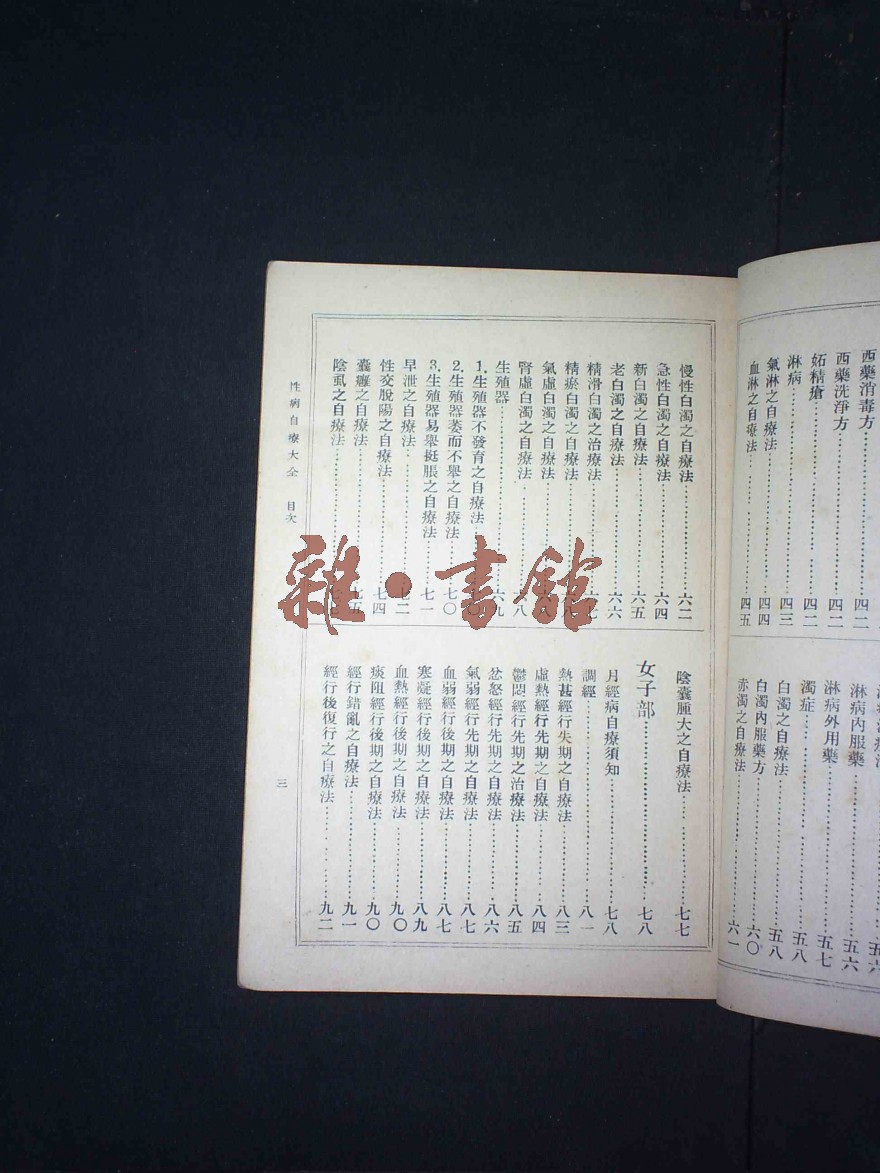 西藥消毒方……四二
西藥洗淨方……四二
妬精瘡……四二
淋病……四三
氣淋之自療法……四四
血淋之自療法……四五
淋病內服藥……五六
淋病外用藥……五七
濁症……五八
白濁之自療法……五八
白濁內服藥方……六〇
赤濁之自療法……六一
慢性白濁之自療法……六二
急性白濁之自療法……六四
新白濁之自療法……六五
老白濁之自療法……六六
精滑白濁之治療法……六七
精瘀白濁之自療法
氣虛白濁之自療法……六八
腎虛白濁之自療法……六八
生殖器……六九
1.生殖器不發育之自療法
2.生殖器萎而不舉之自療法……七〇
3.生殖器易舉挺脹之自療法……七一
早泄之自療法……七二
性交脫陽之自療法……七四
囊癰之自療法……七五
陰虱之自療法
陰囊腫大之自療法……七七
女子部……七八
月經病自療須知……七八
調經……八一
熱甚經行失期之自療法……八三
虛熱經行先期之自療法……八四
鬱悶經行先期之治療法……八五
忿怒經行先期之自療法……八六
氣弱經行先期之自療法……八七
血弱經行後期之自療法……八七
寒凝經行後期之自療法……八九
血熱經行後期之自療法……九〇
痰阻經行後期之自療法……九〇
經行錯亂之自療法……九一
經行後復行之自療法……九二
性病自療大全 目次
三
雜·書館